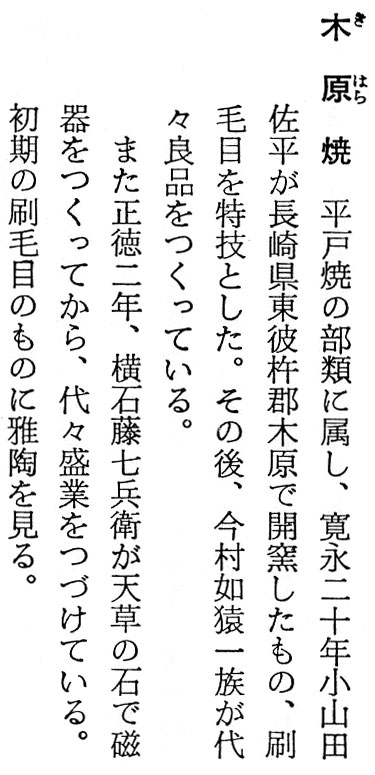 木原焼 平戸焼の部類に属し、寛永二十年小山田
佐平が長崎県東彼杵郡木原で開窯したもの、刷
毛目を特技とした。その後、今村如猿一族が代
々良品をつくっている。
また正徳二年、横石藤七兵衛が天草の石で磁
器をつくってから、代々盛業をつづけている。
初期の刷毛目のものに雅陶を見る。